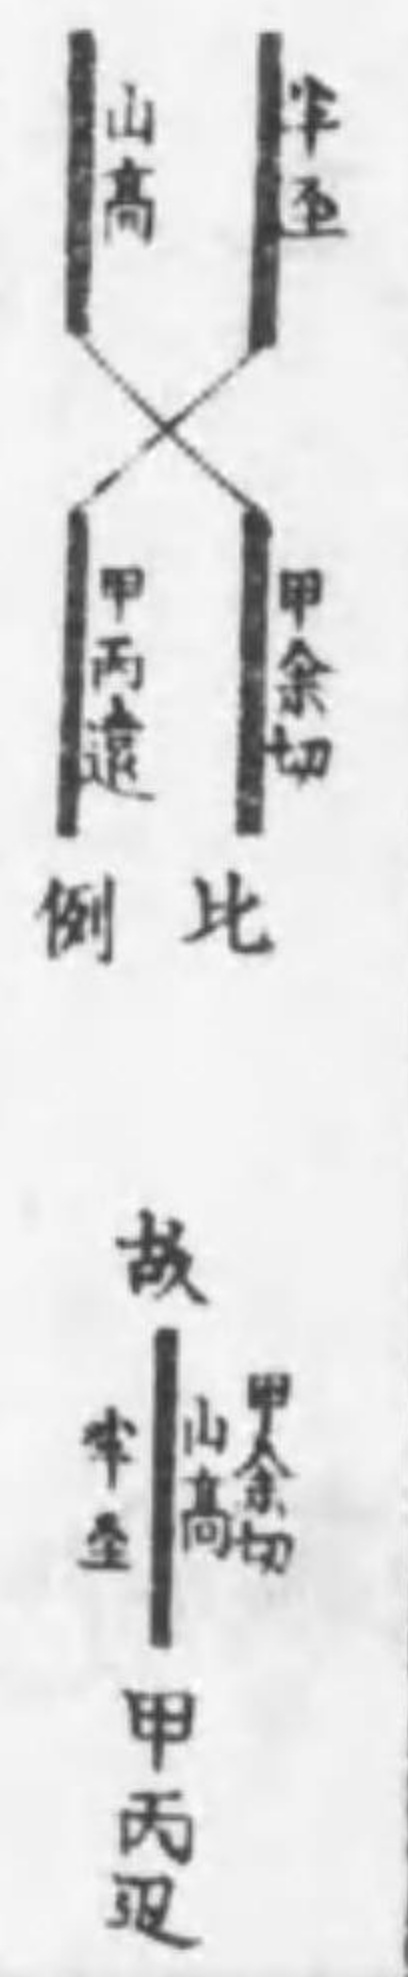 半坙
山高
甲余切
甲丙遠
比例
故
甲余切
山高
半坙
甲丙